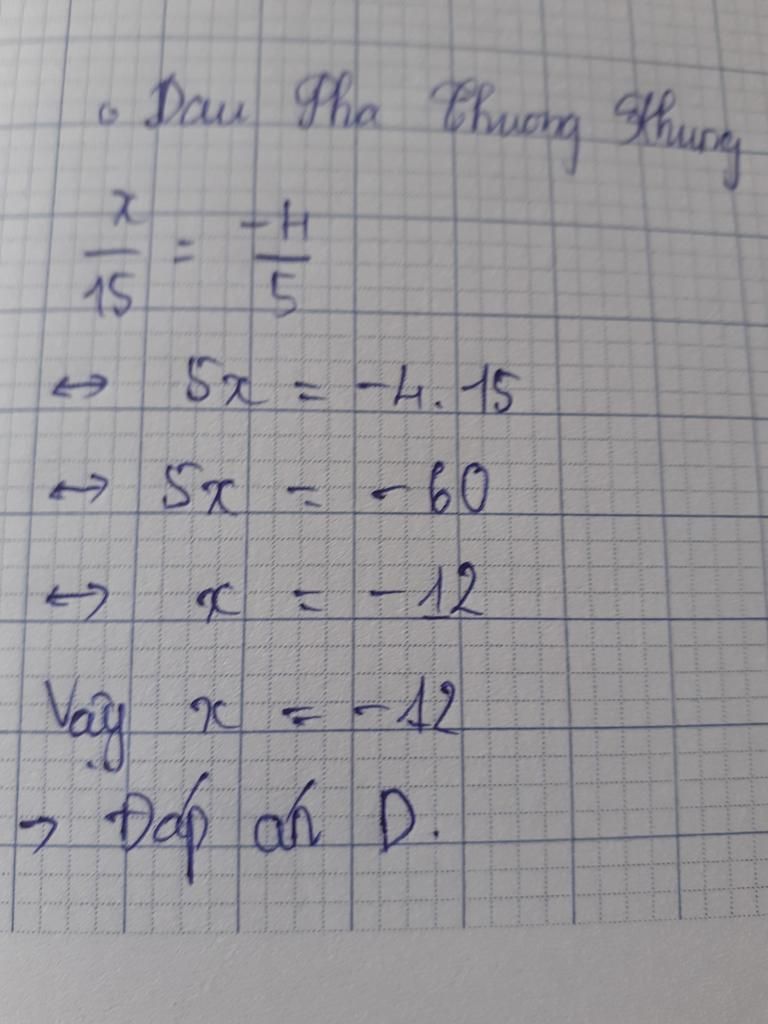 o Dau Pha Thuong Khung
x/15 = -4/5
↔ 5x = -4.15
↔ 5x = -60
↔ x = -12
Vậy x = -12
→ Đáp án D.